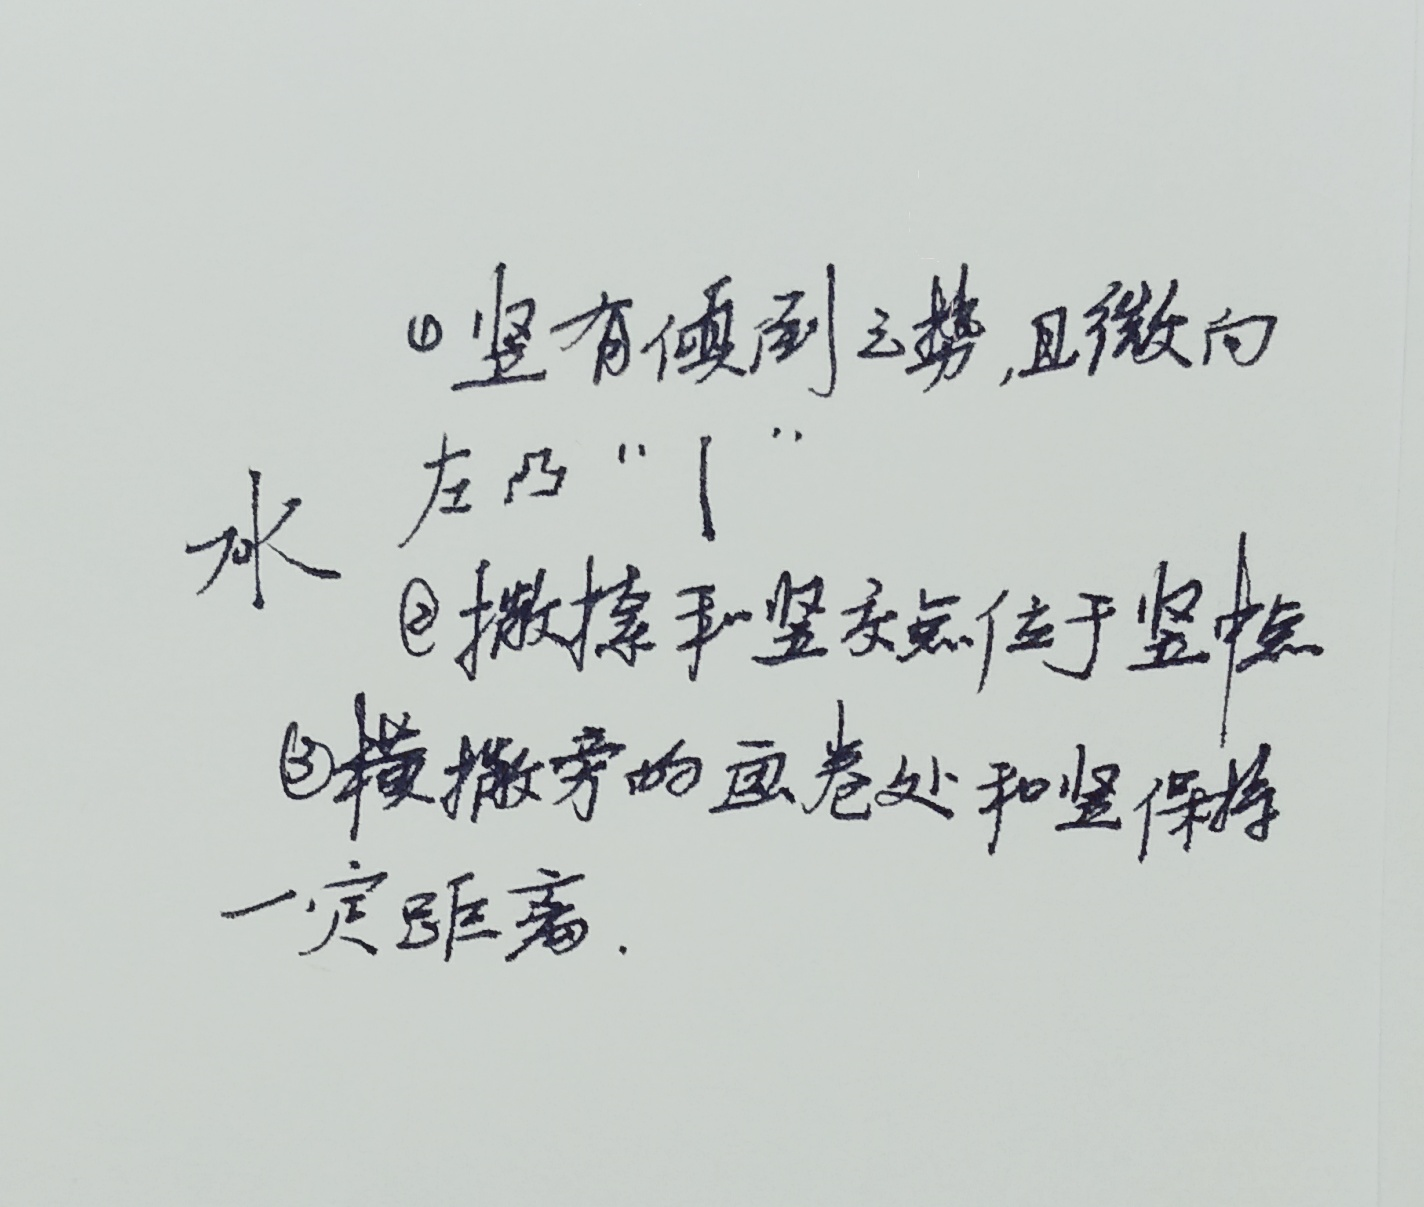 ①竖有倾到之势,且微向
左凸“丨”
水
②撇捺和竖交点位于竖中点
③横撇旁的画卷处和竖保持
一定距离.